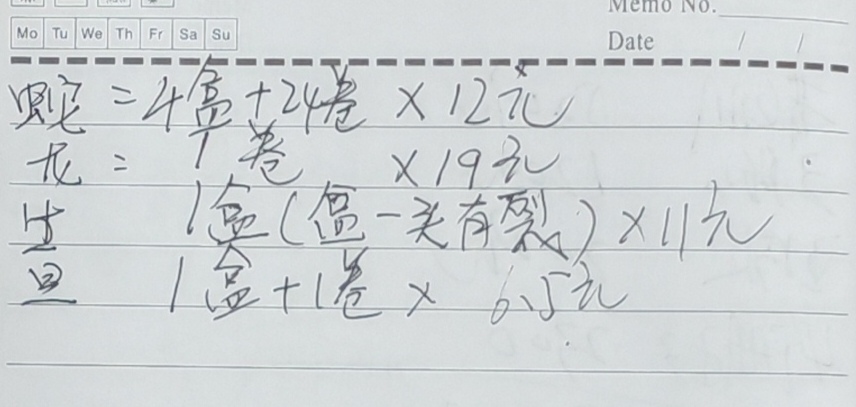 Memo No.
Mo Tu We Th Fr Sa Su
Date / /
蛇=4盒+24卷 ×12元
龙=1卷 ×19元
生 1盒(盒一头有裂)×11元
旦 1盒+1卷 × 6.5元